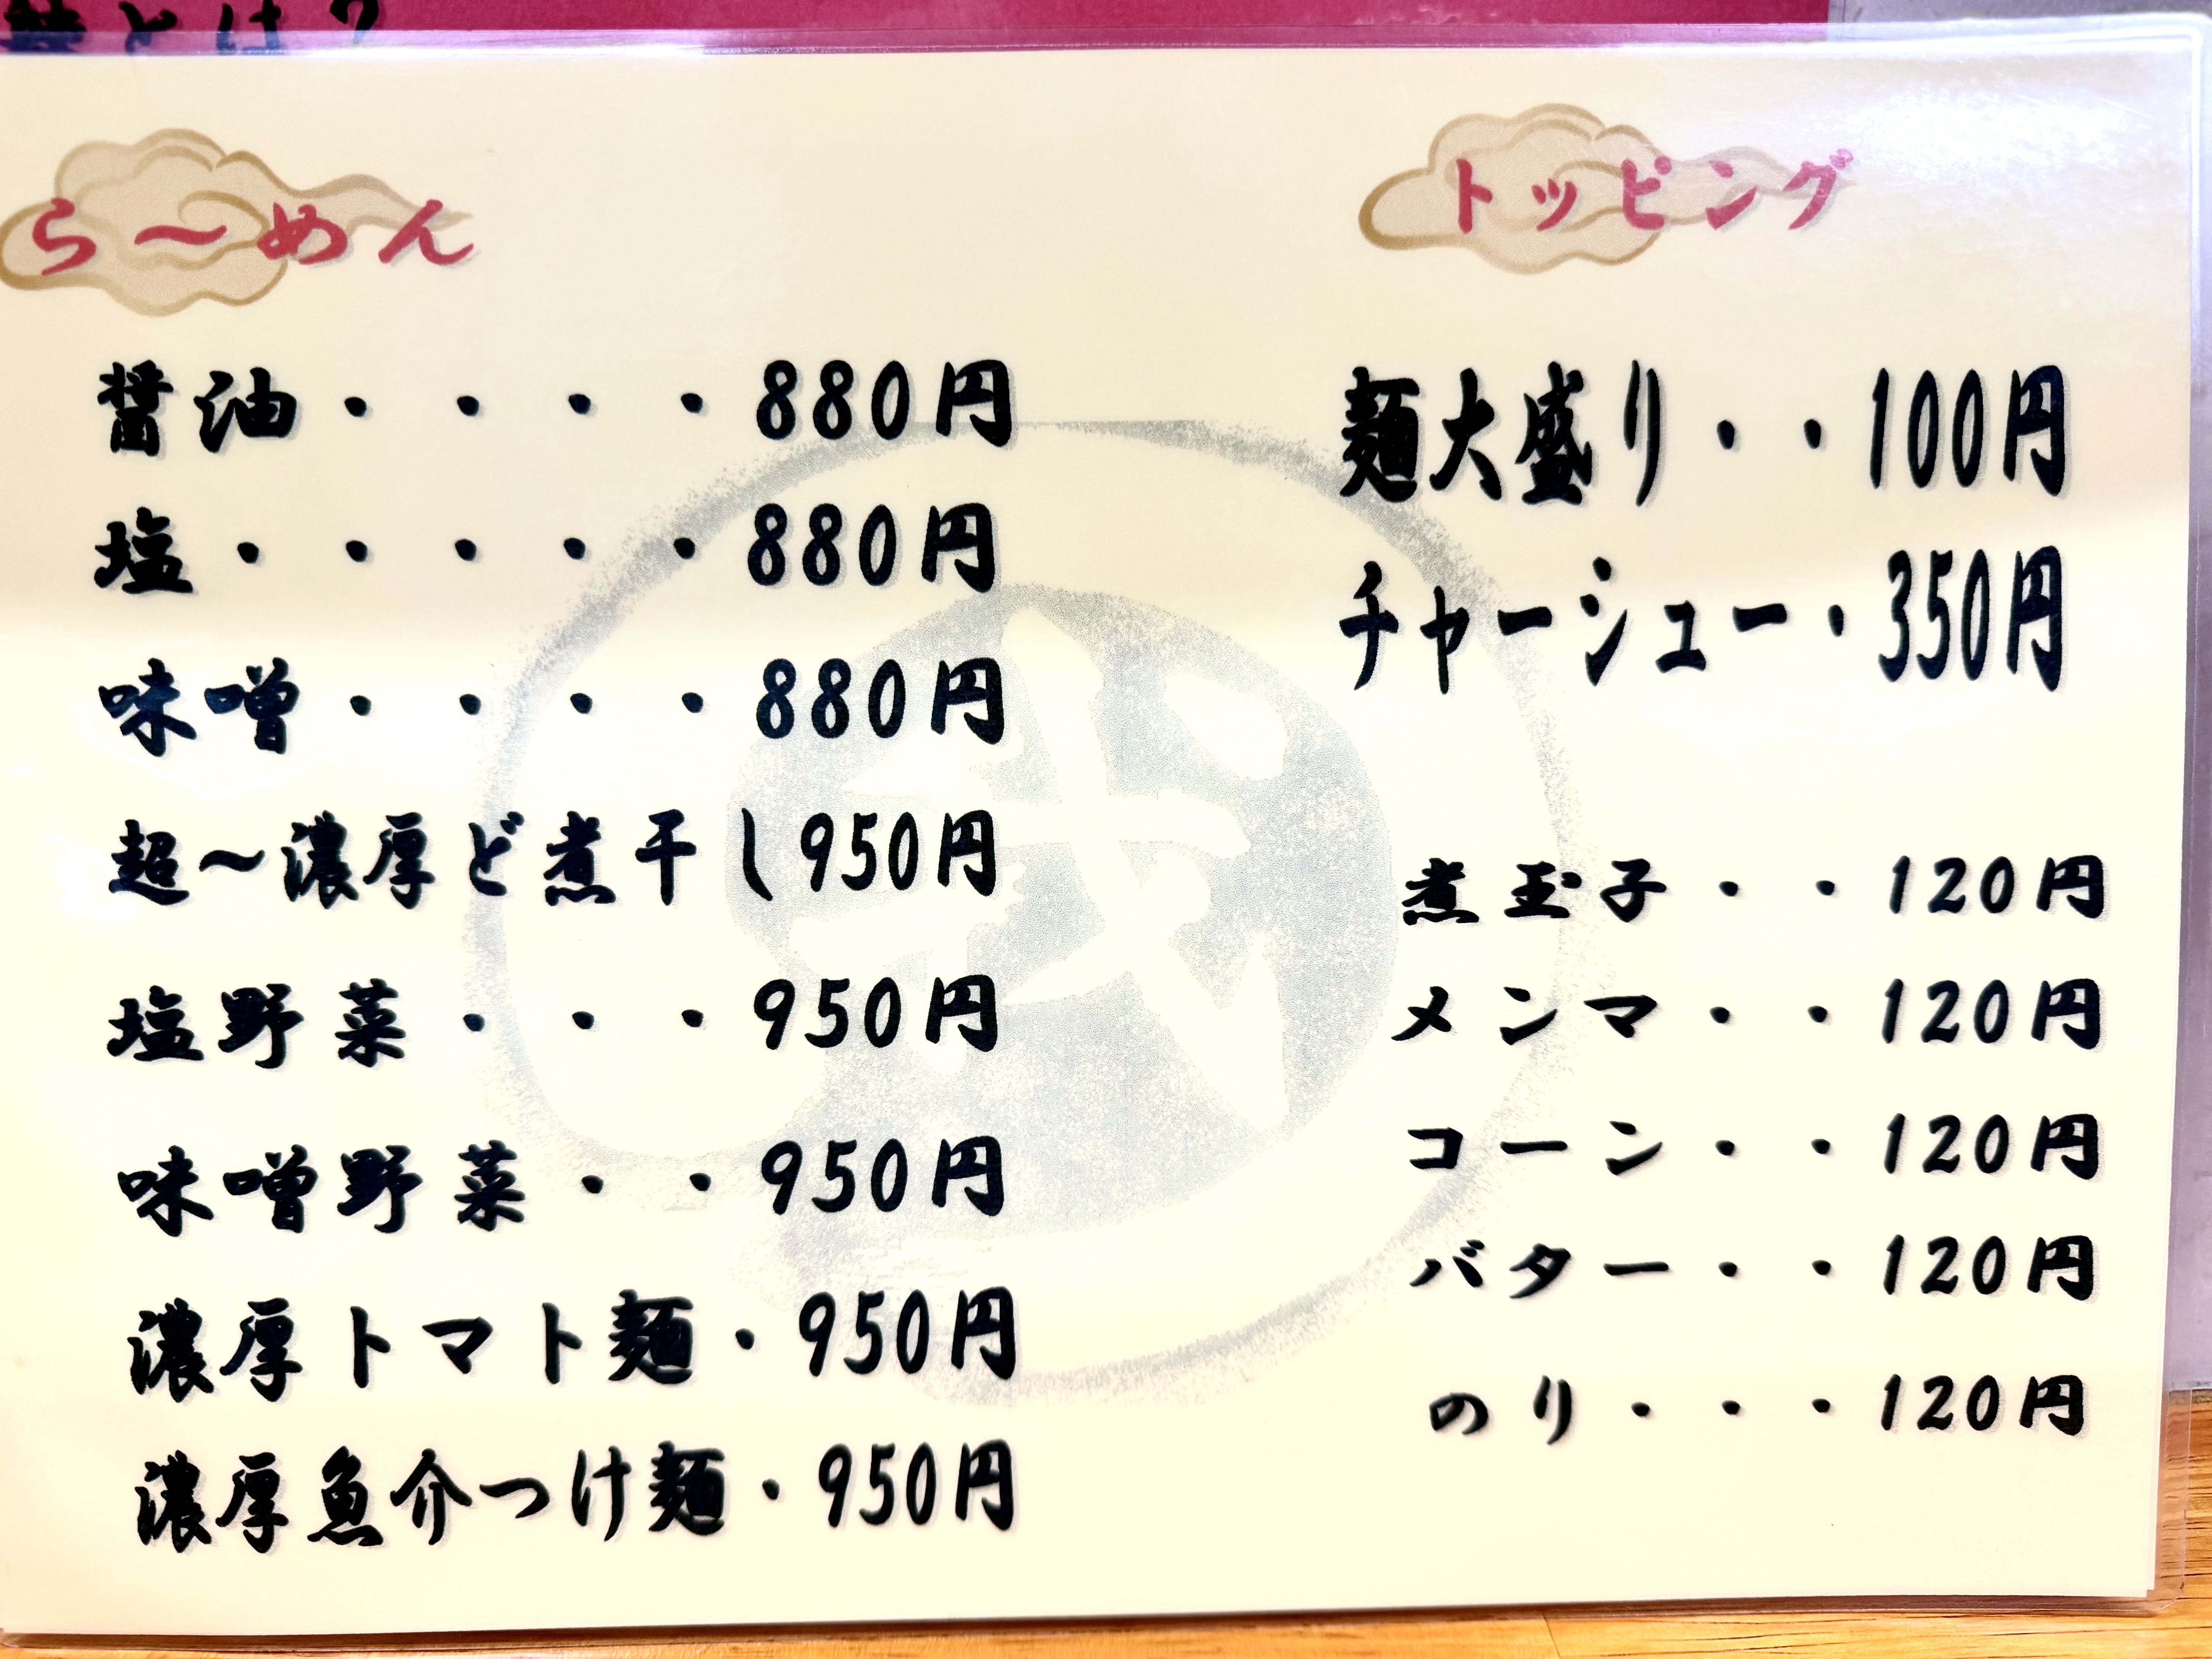 とは？
ら〜めん
醤油・・・・880円
塩・・・・・880円
味噌・・・・880円
超〜濃厚ど煮干し950円
塩野菜・・・950円
味噌野菜・・950円
濃厚トマト麺・950円
濃厚魚介つけ麺・950円
トッピング
麺大盛り・・100円
チャーシュー・350円
煮玉子・・120円
メンマ・・120円
コーン・・120円
バター・・120円
のり・・・120円